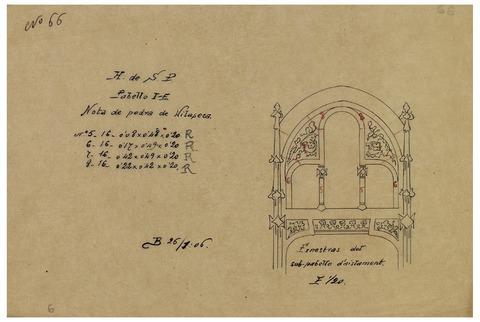 Nº 66
66
H. de S P
Pabelló I-E
Nota de pedra de Vilaseca.
nº 5 - 16 - 0'08 x 0'48 x 0'20 R
6 - 16 - 0'17 x 0'49 x 0'20 R
7 - 16 - 0'42 x 0'49 x 0'20 R
8 - 16 - 0'22 x 0'42 x 0'20 R
B 26/7-06.
Finestras del
sub-pabelló d'aislament.
E 1/20.
6